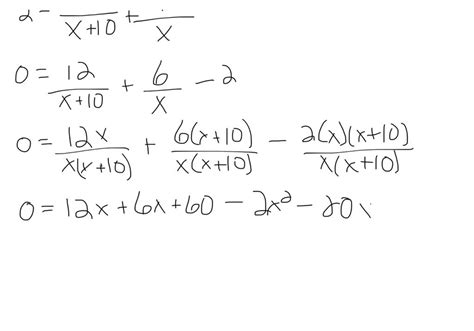 2 = / x+10 + / x
0 = 12/(x+10) + 6/x − 2
0 = 12x/(x(x+10)) + 6(x+10)/(x(x+10)) − 2(x)(x+10)/(x(x+10))
0 = 12x + 6x + 60 − 2x² − 20x